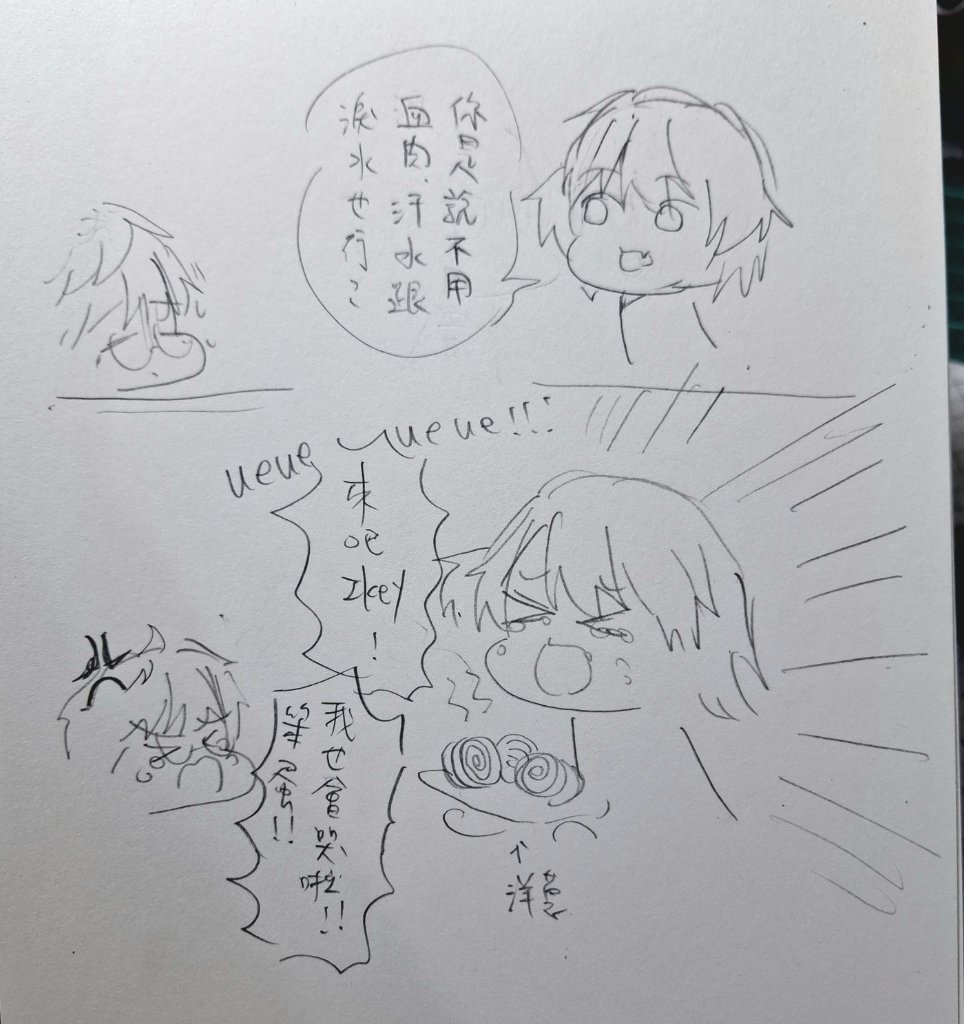 你是說不用
血肉、汗水跟
淚水也行？
ueue~ueue!!!
來吧
Ikey
!
我也會哭啦!!
笨蛋!!
洋蔥